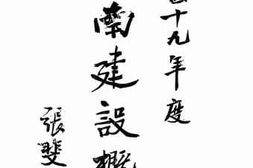 十九年度
南建設概
張斐